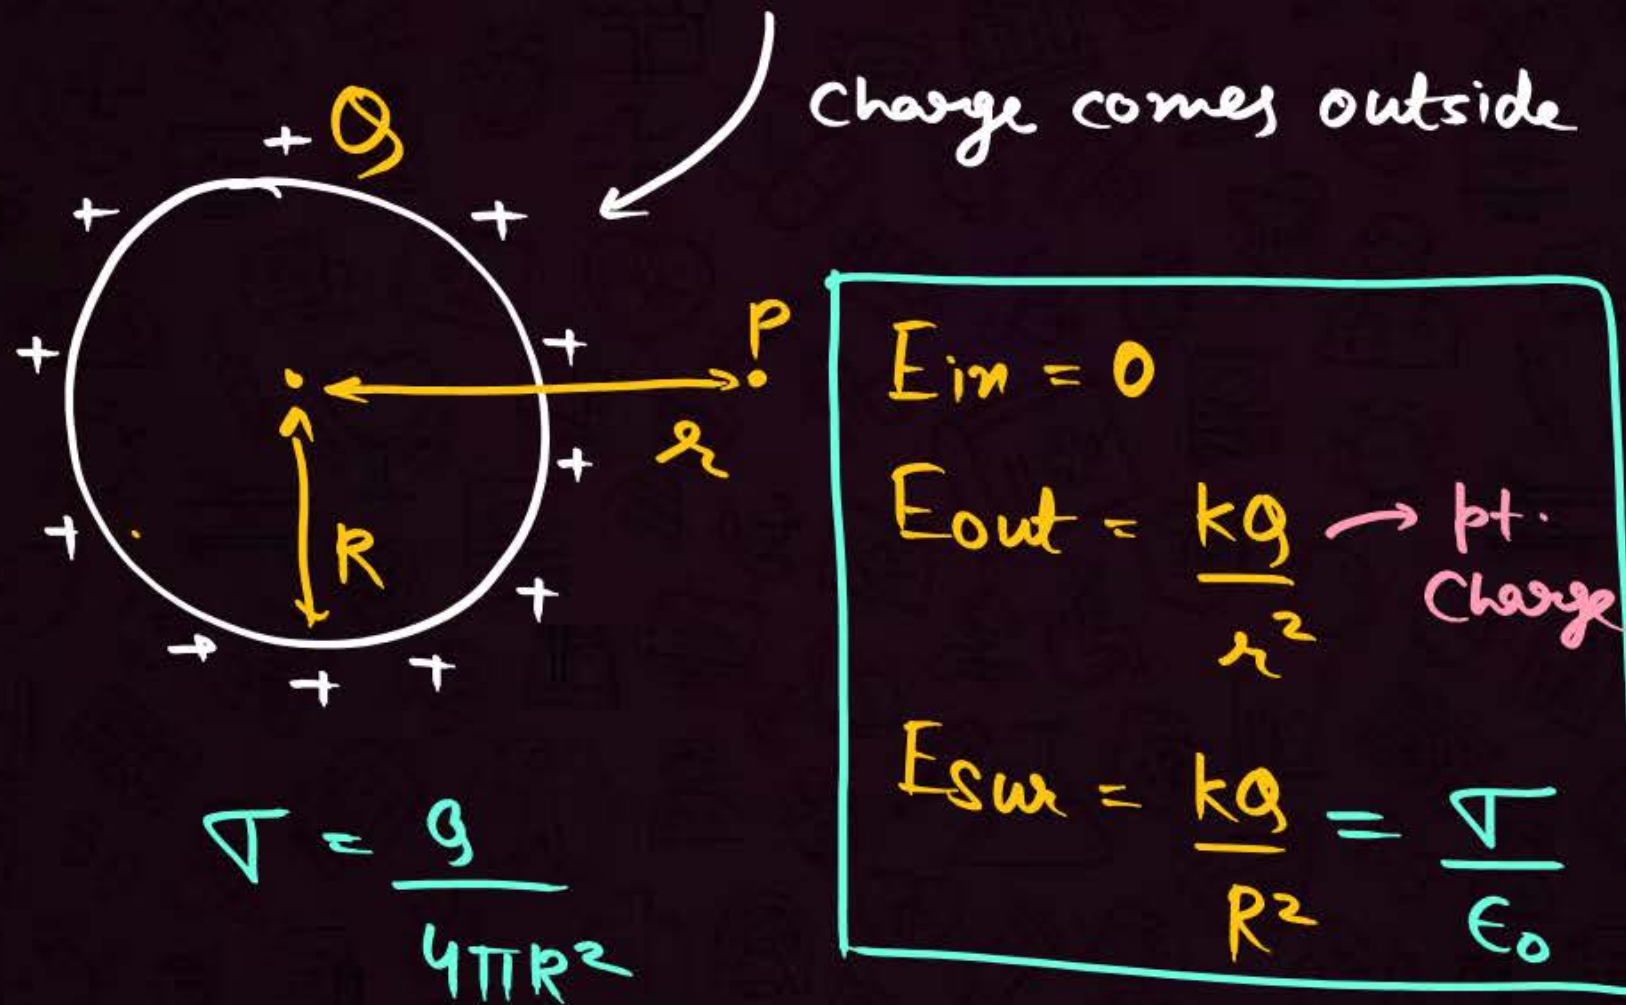 Charge comes outside
+ Q
+ +
+ +
P
r
+
+
R
+
+ +
+
σ = Q
4πR²
Ein = 0
Eout = kQ → pt.
r² Charge
Esur = kQ = σ
R² ϵ₀